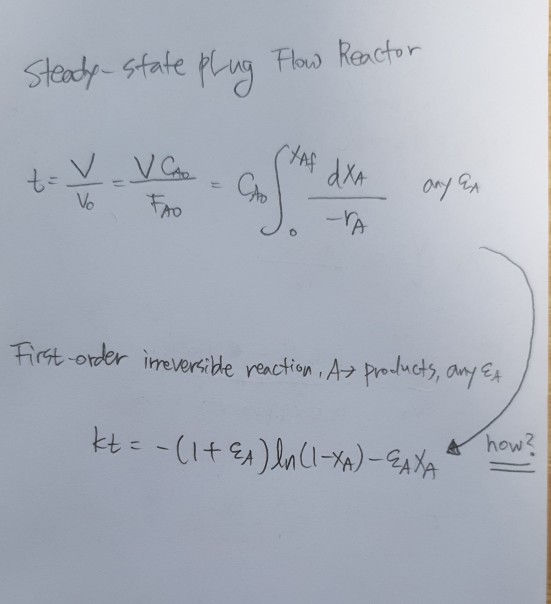 Steady-state plug Flow Reactor
t = V/v₀ = V C_A₀/F_A0 = C_A₀ ∫₀^X_Af dX_A/-r_A any ε_A
First-order irreversible reaction, A → products, any ε_A
kt = -(1 + ε_A) ln(1-X_A) - ε_A X_A how?